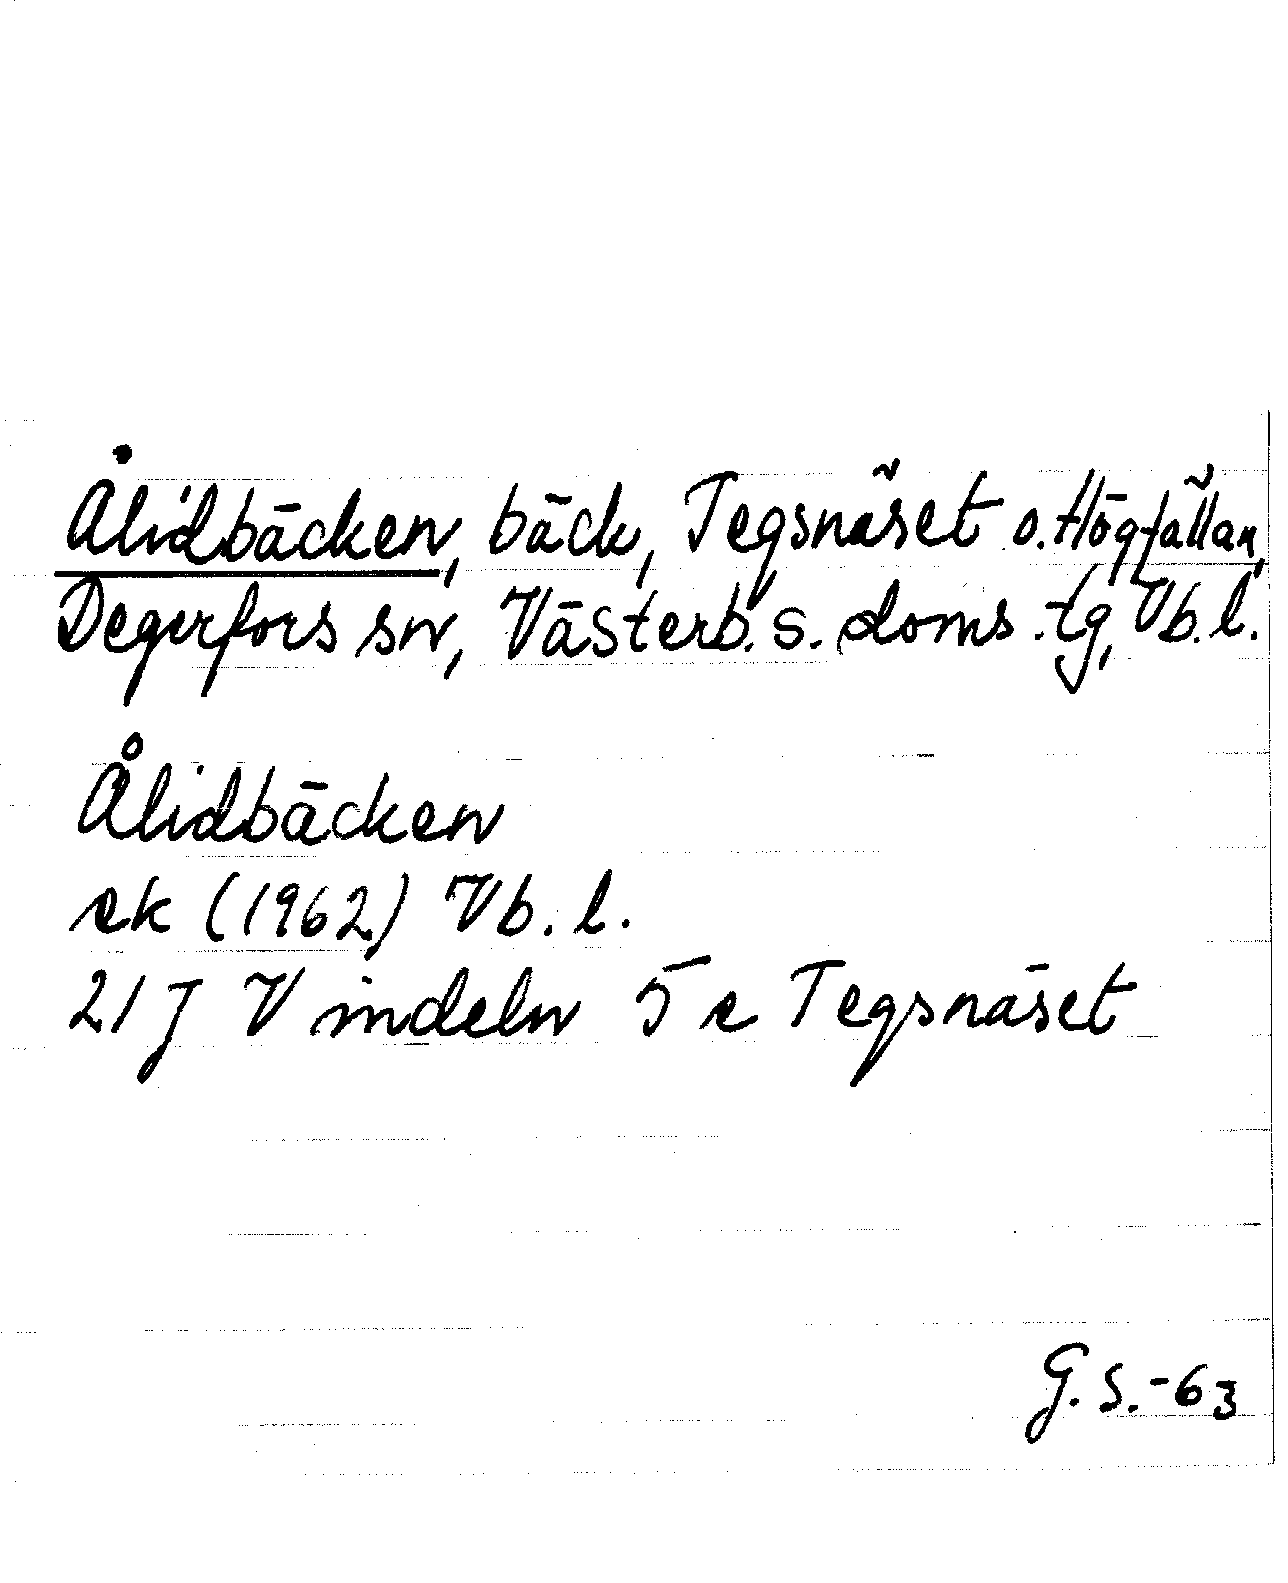 Ålidbäcken, bäck, Tegsnäset o. Högfällan,
Degerfors sn, Västerb. s. doms.tg, Vb.l.
Ålidbäcken
ek (1962) Vb.l.
21 J Vindeln 5 e Tegsnäset
G.S.-63